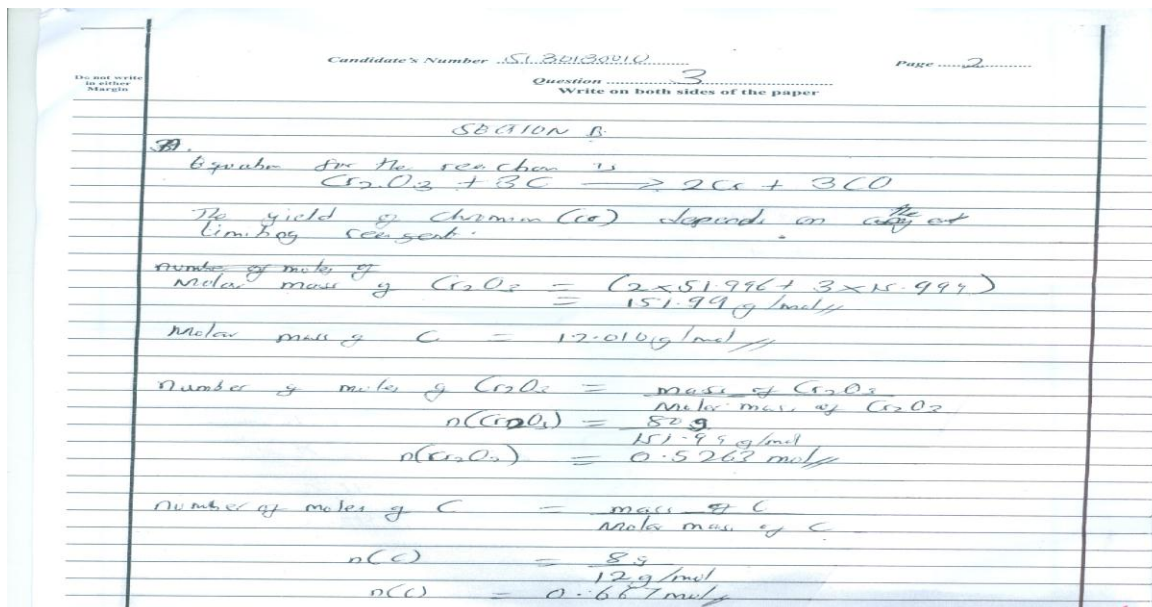 Candidate's Number S1 30180010
Page 2
Do not write in either Margin
Question 3
Write on both sides of the paper
SECTION B.
Equation for the reaction is
Cr2O3 + 3C → 2Cr + 3CO
The yield of chromium (cr) depends on the
limiting reagent.
number of moles of
Molar mass of Cr2O3 = (2×51.996 + 3×15.999)
= 151.99 g/mol
Molar mass of C = 12.010 g/mol
number of moles of Cr2O3 = mass of Cr2O3
Molar mass of Cr2O3
n(Cr2O3) = 80 g
151.99 g/mol
n(Cr2O3) = 0.5263 mol
number of moles of C = mass of C
Molar mass of C
n(C) = 8g
12 g/mol
n(C) = 0.667 mol